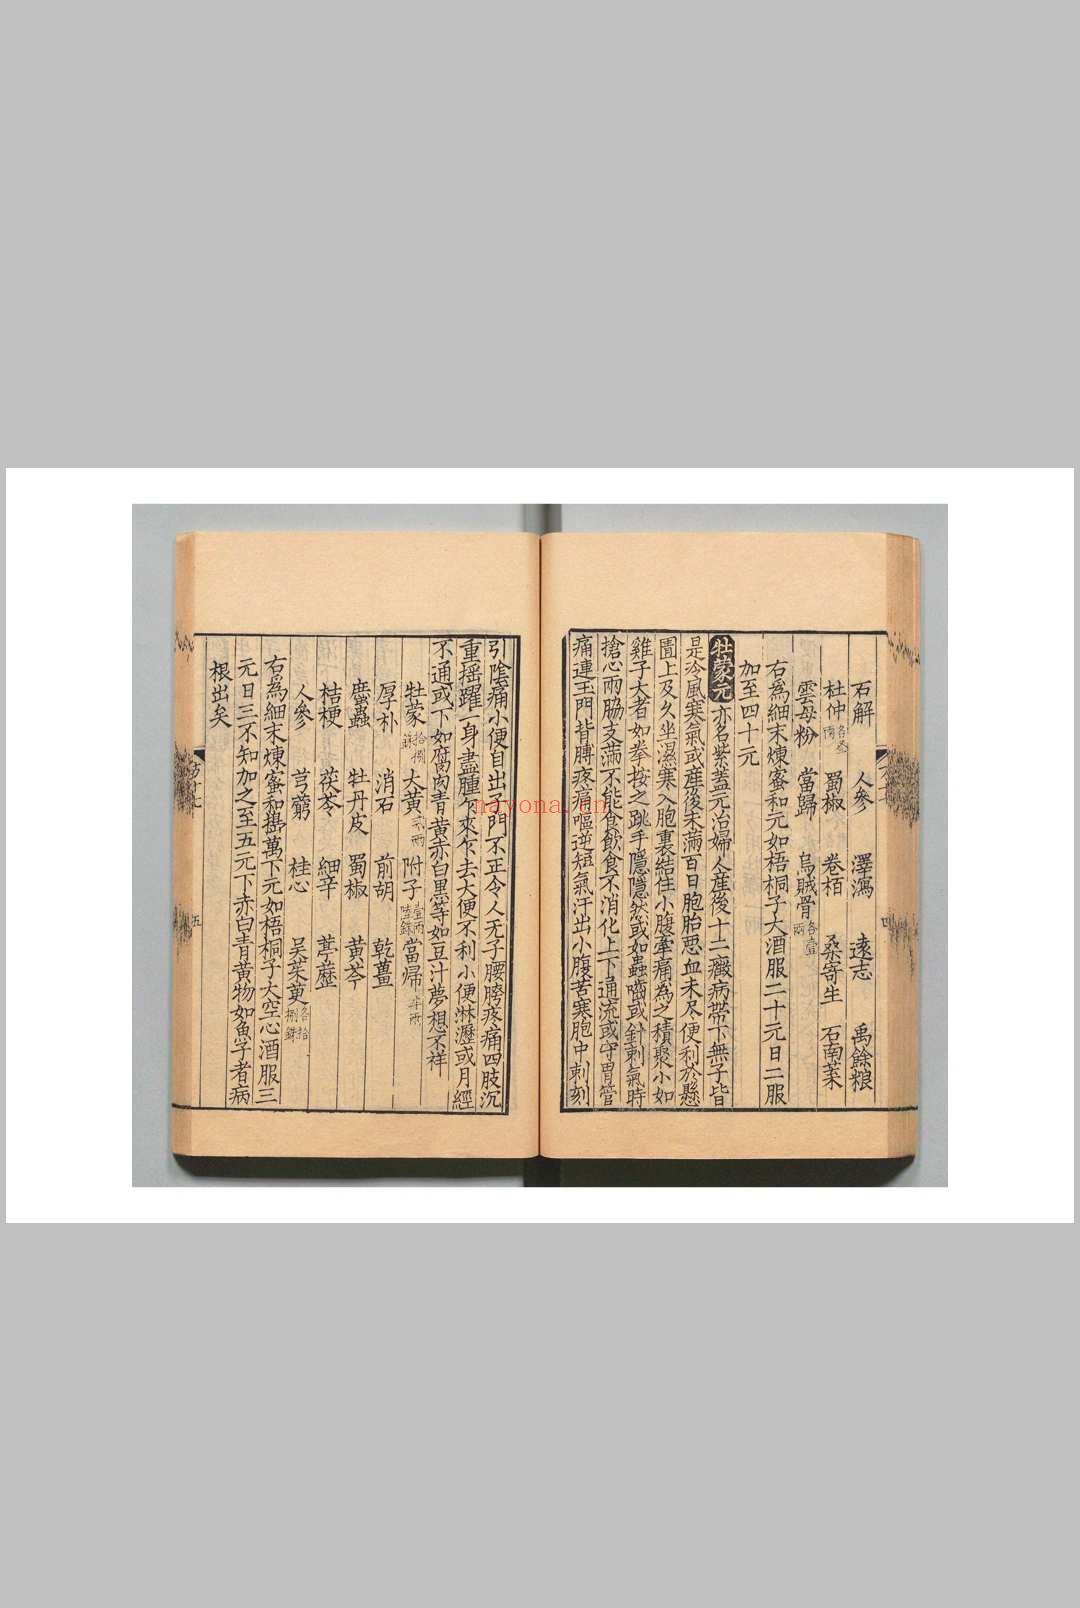 石解　人參　澤瀉　遠志　禹餘粮
杜仲各叁兩　蜀椒　卷栢　桑寄生　石南葉
雲母粉　當歸　烏賊骨各壹兩
右爲細末煉蜜和元如梧桐子大酒服二十元日二服
加至四十元
牡蒙元亦名紫蓋元治婦人産後十二癥病帶下無子皆
是冷風寒氣或産後未滿百日胞胎惡血未尽便利於懸
圊上及久坐濕寒入胞裏結住小腹牽痛為之積聚小如
雞子大者如拳按之跳手隱隱然或如蟲嚙或針刺氣時
搶心兩脇支滿不能食飲食不消化上下通流或守胃管
痛連玉門背膊疼痛嘔逆短氣汗出小腹苦寒胞中刺刻
四
引陰痛小便自出子門不正令人无子腰胯疼痛四肢沉
重摇躍一身盡腫乍來乍去大便不利小便淋瀝或月經
不通或下如腐肉青黄赤白黒等如豆汁夢想不祥
牡蒙拾捌銖　大黄　附子壹兩陸銖　當歸半兩
厚朴　消石　前胡　乾薑
䗪蟲　牡丹皮　蜀椒　黄芩
桔梗　茯苓　細辛　葶藶
人參　芎藭　桂心　吴茱萸各拾捌銖
右爲細末煉蜜和擣萬下元如梧桐子大空心酒服三
元日三不知加之至五元下赤白青黄物如魚子者病
根出矣
方十七
五
nayona.cn